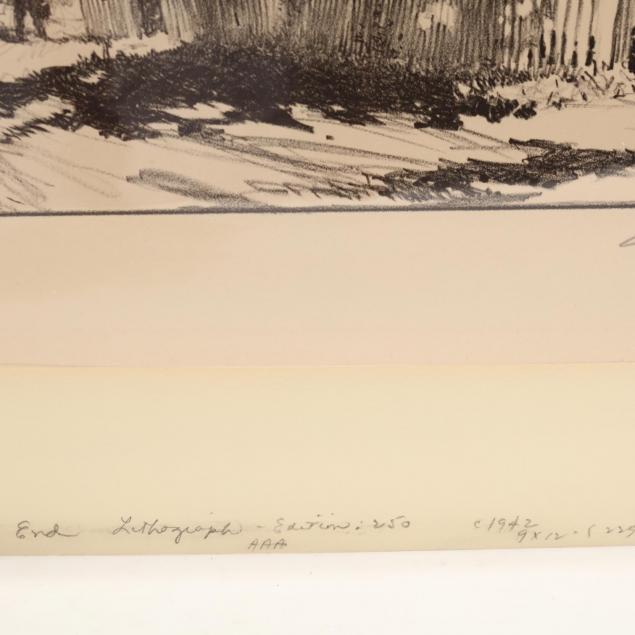 End Lithograph - Edition: 250 c1942
AAA 9 x 12 - ( 229